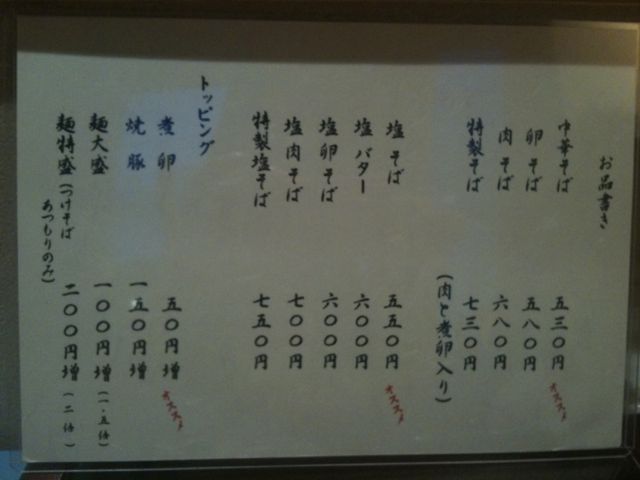 お品書き
中華そば 五三〇円 オススメ
卵そば 五八〇円
肉そば 六八〇円
特製そば 七三〇円
(肉と煮卵入り)
塩そば 五五〇円 オススメ
塩バター 六〇〇円
塩卵そば 六〇〇円
塩肉そば 七〇〇円
特製塩そば 七五〇円
トッピング
煮卵 五〇円増 オススメ
焼豚 一五〇円増
麺大盛 一〇〇円増 (一・五倍)
麺特盛 (つけそば あつもりのみ) 二〇〇円増 (二倍)